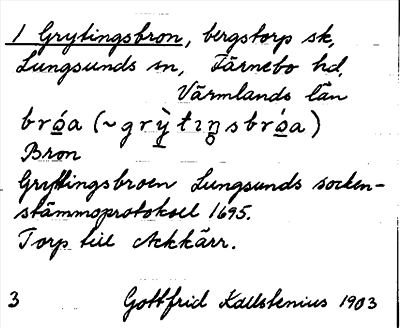 1 Grytingsbron, bergstorp sk,
Lungsunds sn, Färnebo hd,
Värmlands län
bróa (~grỳtıŋsbróa)
Bron
Gryttingsbroen Lungsunds socken-
stämmoprotokoll 1695.
Torp till Ackkärr.
3 Gottfrid Kallstenius 1903